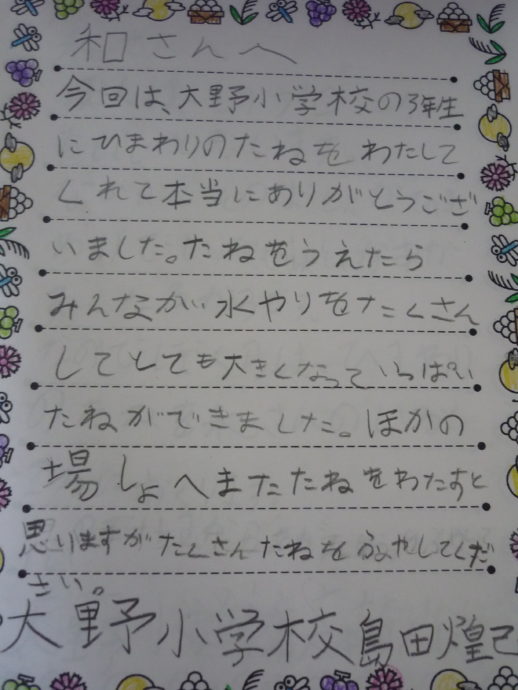 和さんへ
今回は、大野小学校の3年生
にひまわりのたねをわたして
くれて本当にありがとうござ
いました。たねをうえたら
みんなが水やりをたくさん
してとても大きくなっていっぱい
たねができました。ほかの
場しょへまたたねをわたすと
思いますがたくさんたねをふやしてくだ
さい。
大野小学校島田煌己